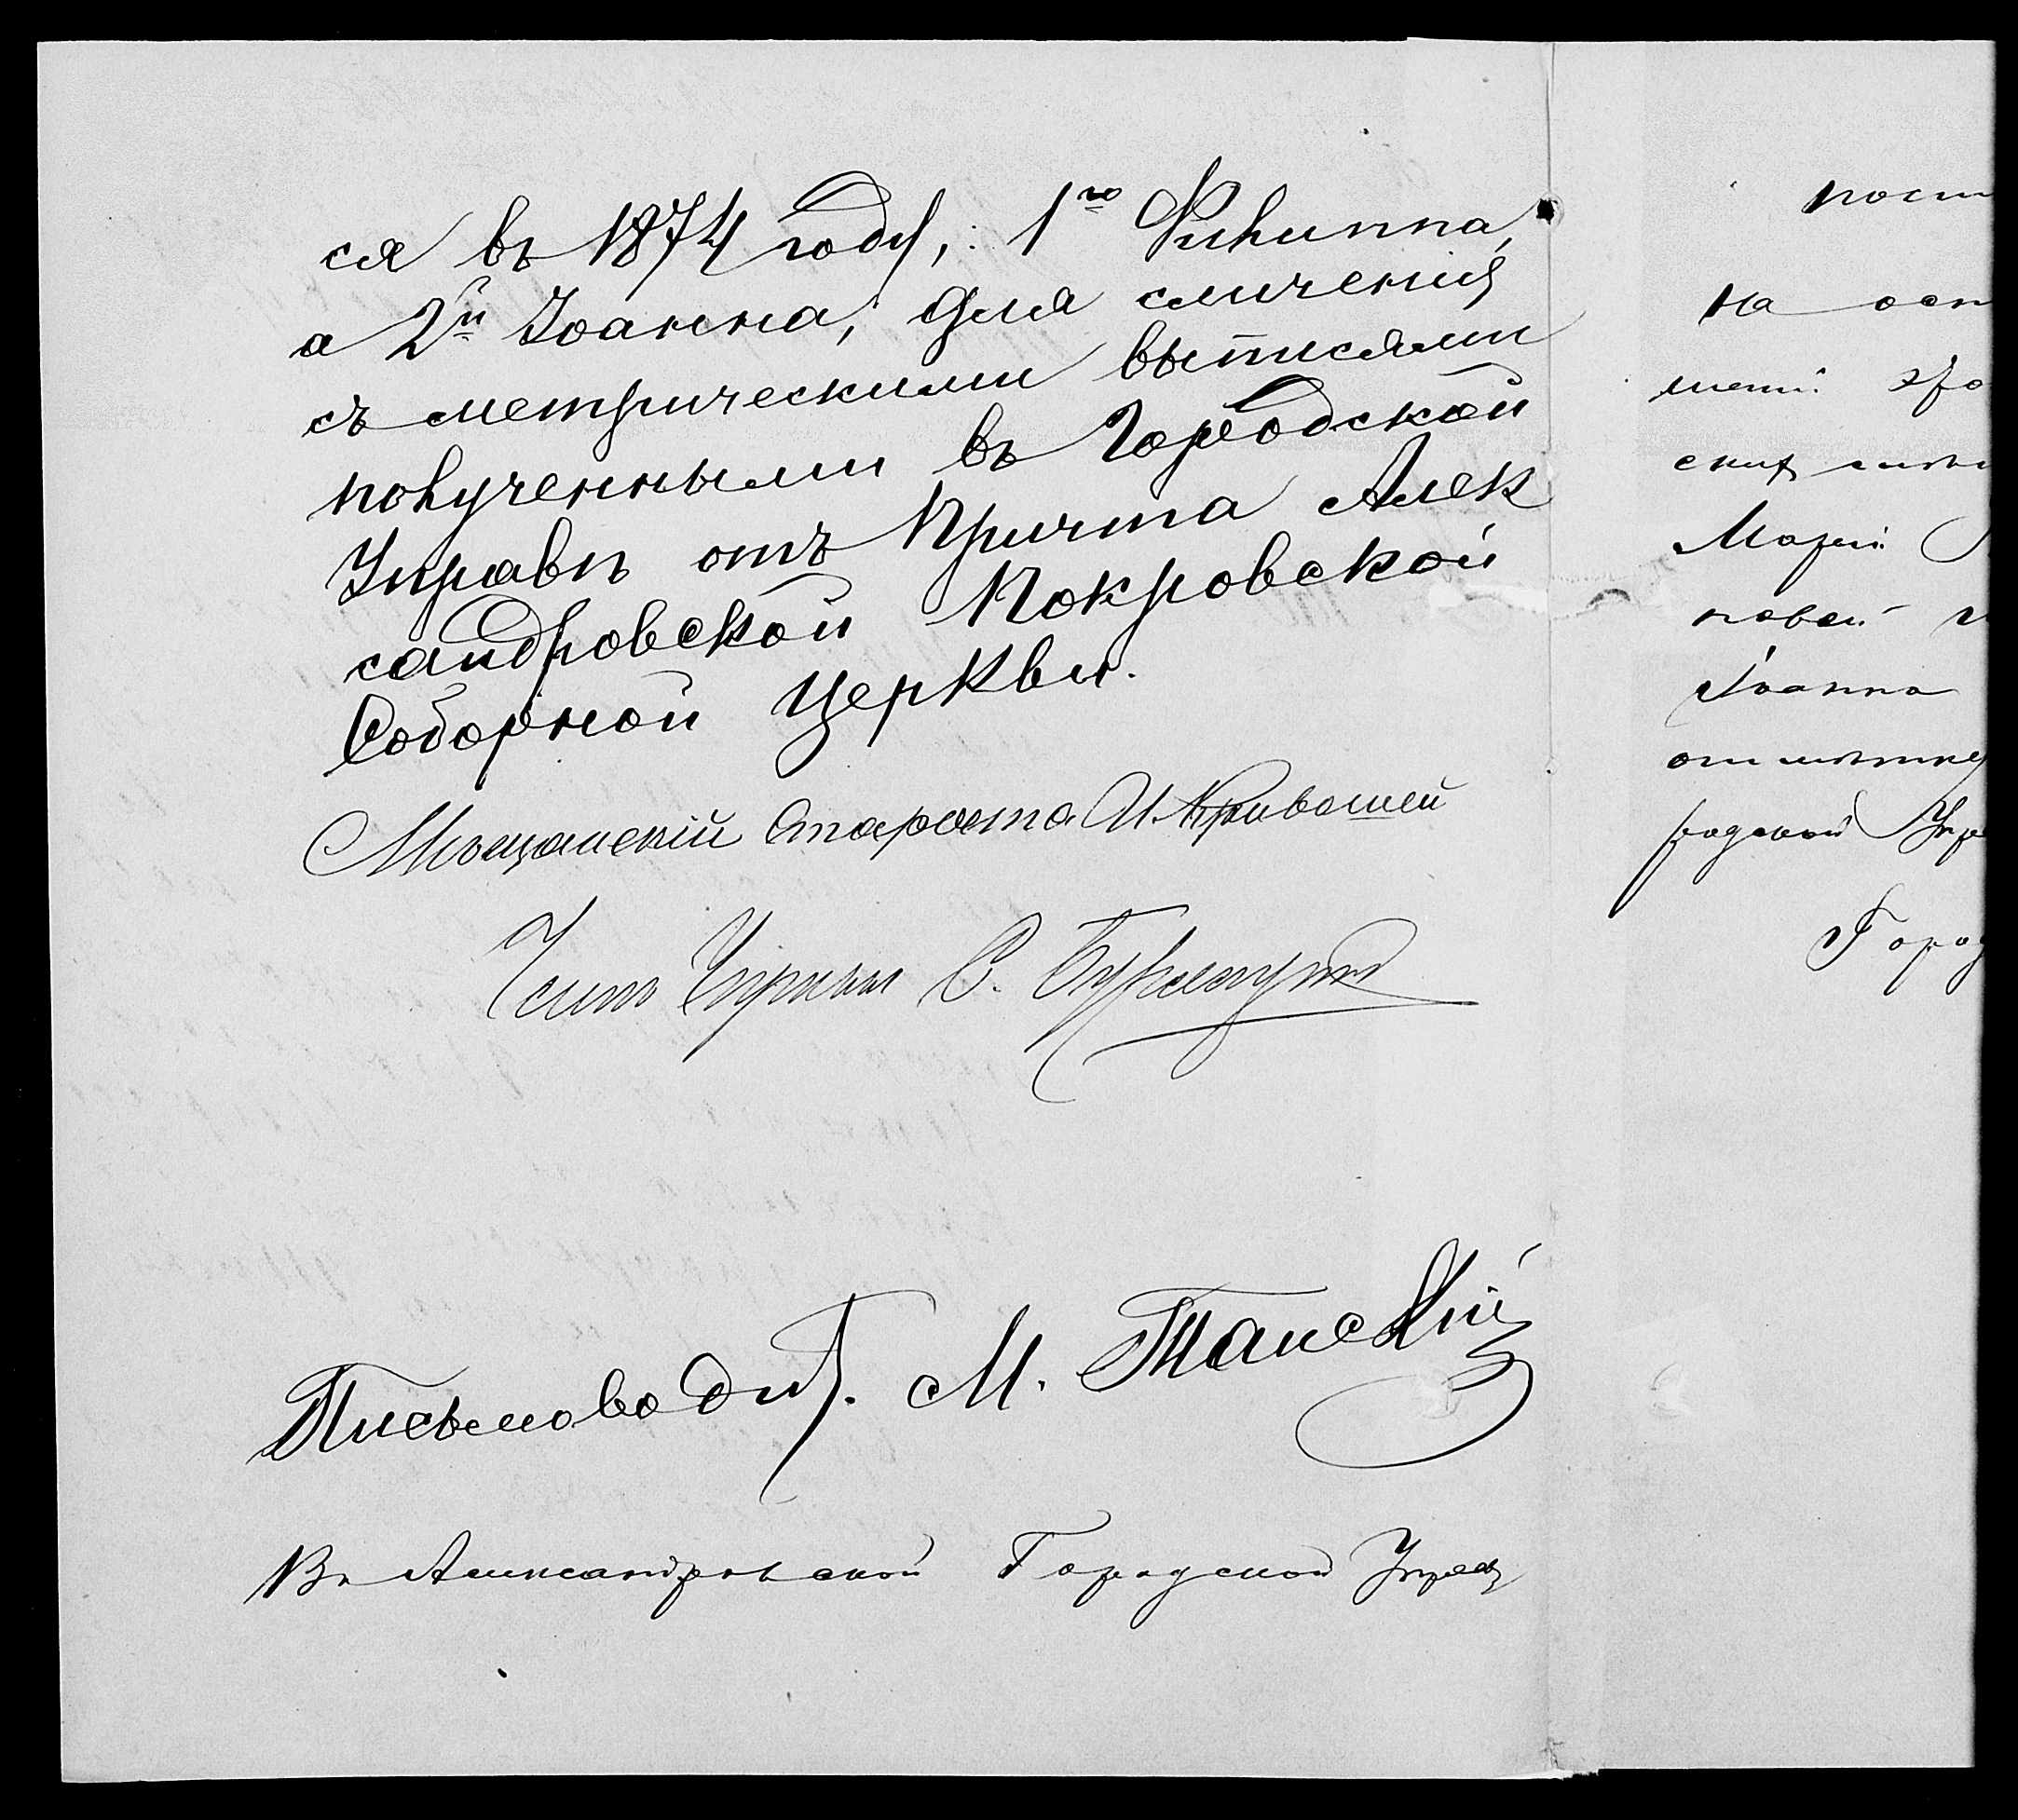 ся въ 1874 году, 1го Филиппа,
а 2й Іоанна, для сличенія
съ метрическими выписями
полученными въ Городской
Управѣ отъ Причта Алек
сандровской Покровской
Соборной Церквы.
Мѣщанскій Староста И. Кривошей
Членъ Управы С.
Письмоводит. М. Танскій
Въ Александровской Городской Управ
пост
на осн
Маріи
Іоанна
родской Упр
Город